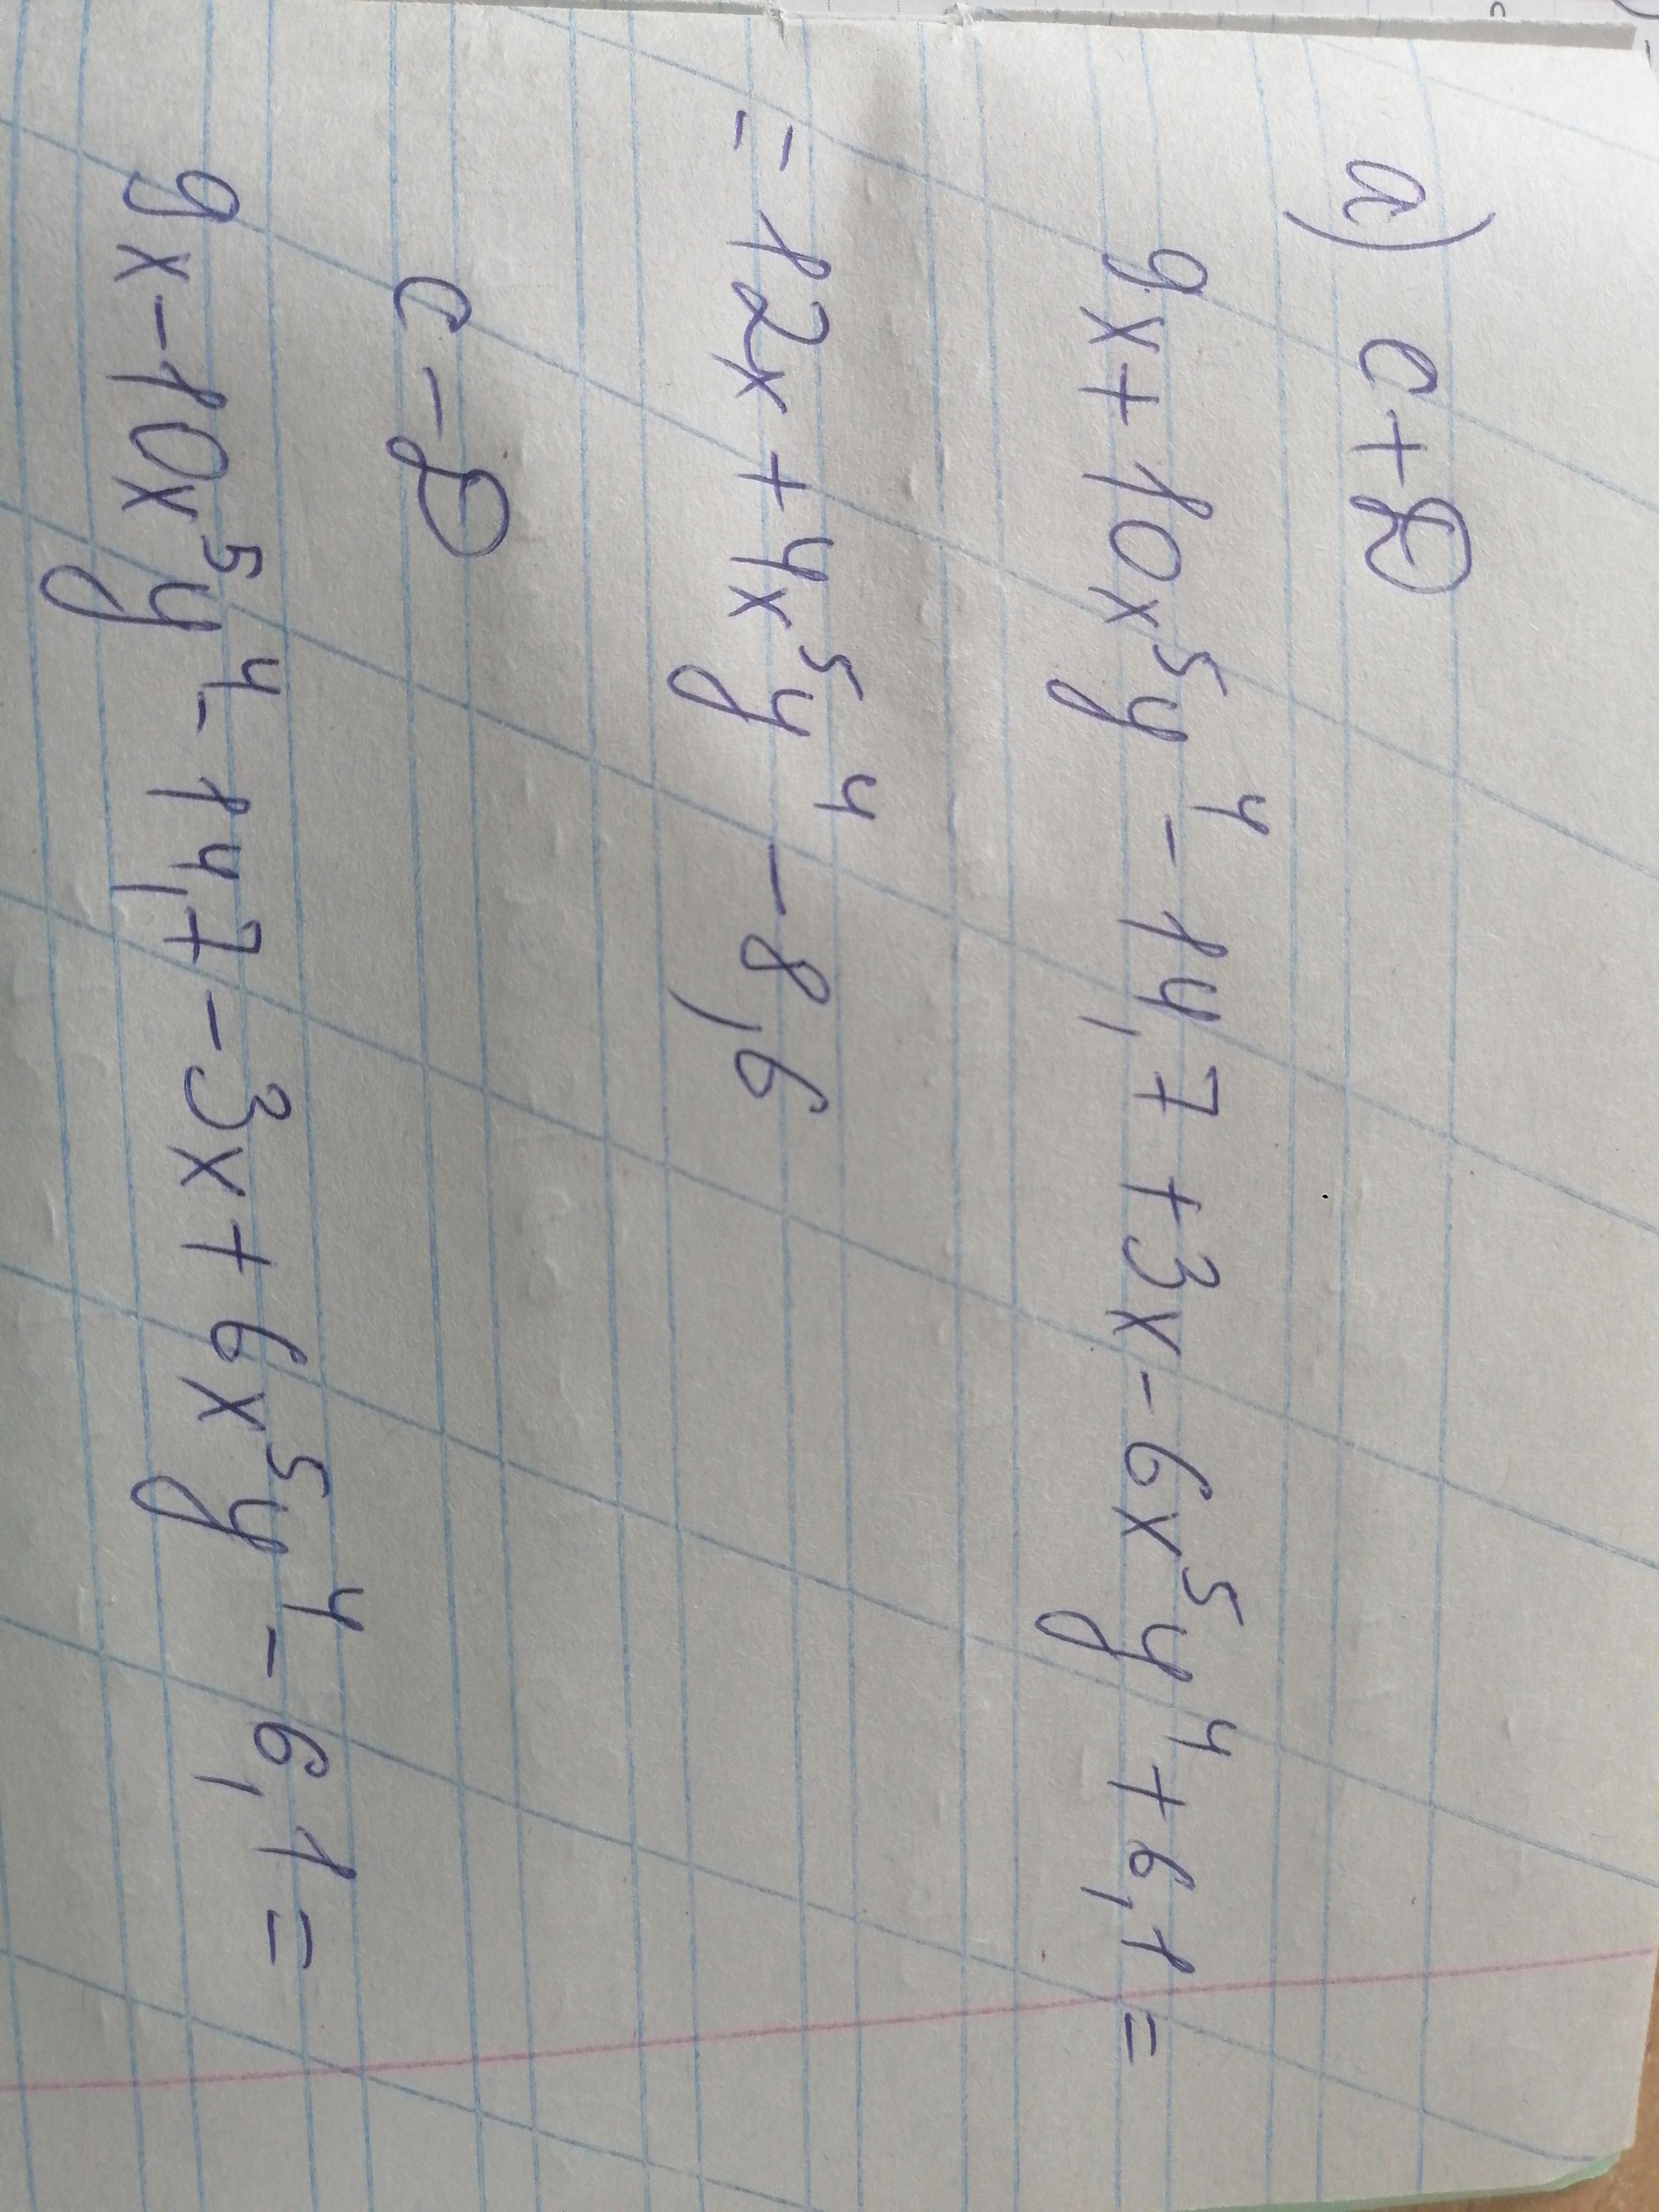 а) c+D
9x+10x⁵y⁴-14,7+3x-6x⁵y⁴+6,1=
=12x+4x⁵y⁴-8,6
c-D
9x-10x⁵y⁴-14,7-3x+6x⁵y⁴-6,1=